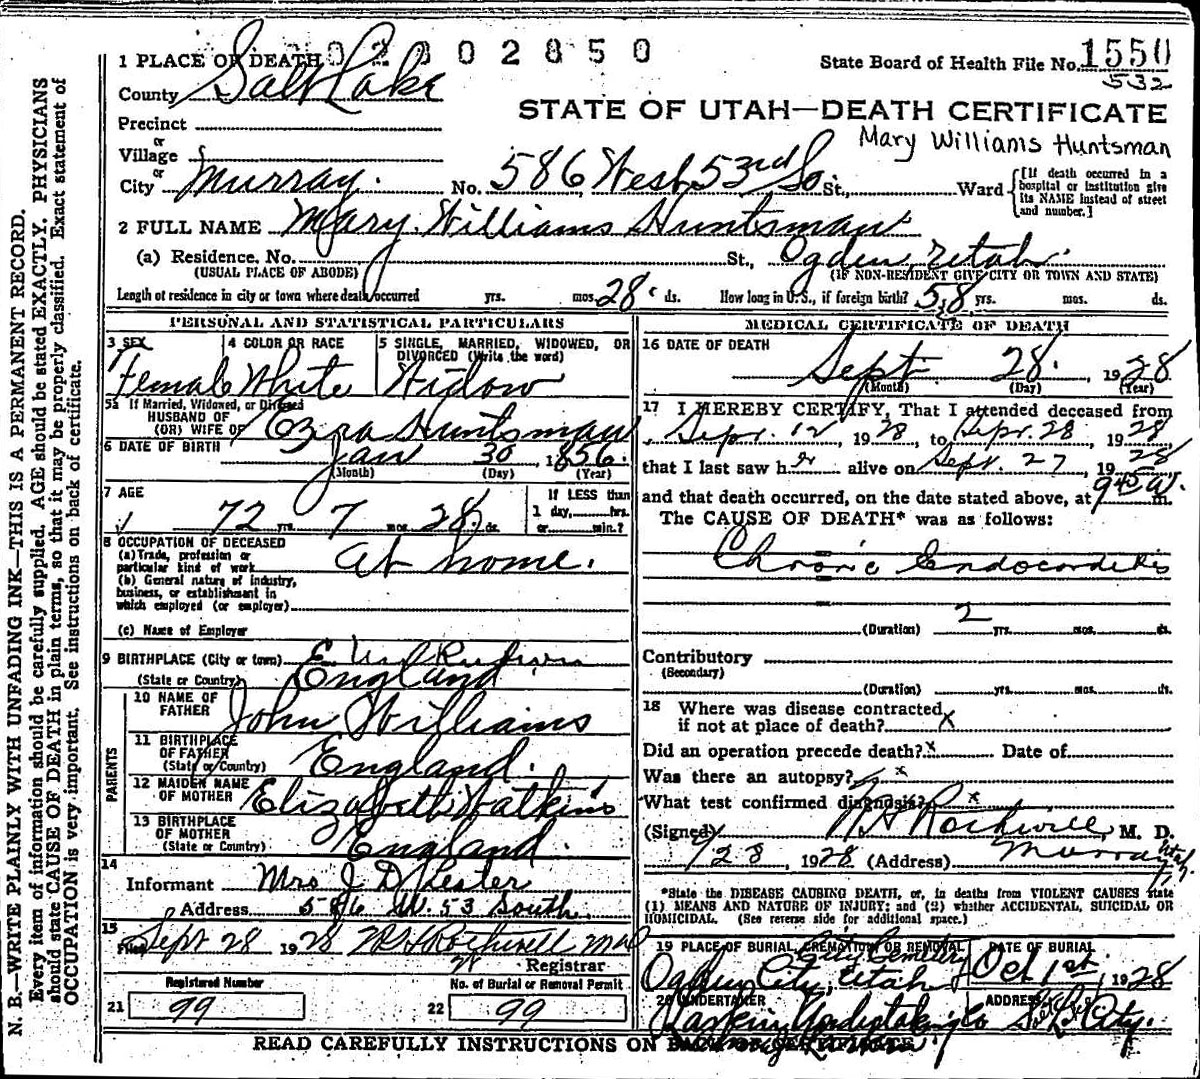 02 802850
1 PLACE OF DEATH
State Board of Health File No. 1550
532
County Salt Lake
STATE OF UTAH—DEATH CERTIFICATE
Precinct
Mary Williams Huntsman
or
Village
or
City Murray. No. 586 West 53rd So St., Ward [If death occurred in a hospital or institution give its NAME instead of street and number.]
2 FULL NAME Mary Williams Huntsman
(a) Residence, No. St., Ogden, Utah.
(USUAL PLACE OF ABODE) (IF NON-RESIDENT GIVE CITY OR TOWN AND STATE)
Length of residence in city or town where death occurred yrs. mos. 28 ds. How long in U.S., if foreign birth? 58 yrs. mos. ds.
PERSONAL AND STATISTICAL PARTICULARS
3 SEX 4 COLOR OR RACE 5 SINGLE, MARRIED, WIDOWED, OR DIVORCED (Write the word)
Female White Widow
5a If Married, Widowed, or Divorced
HUSBAND OF
(OR) WIFE OF Ezra Huntsman
6 DATE OF BIRTH Jan 30, 1856.
(Month) (Day) (Year)
7 AGE If LESS than
72 yrs. 7 mos. 28 ds. 1 day, hrs.
or min.?
8 OCCUPATION OF DECEASED
(a) Trade, profession or particular kind of work at home.
(b) General nature of industry,
business, or establishment in
which employed (or employer)
(c) Name of Employer
9 BIRTHPLACE (City or town)
(State or Country) England
PARENTS
10 NAME OF FATHER John Williams
11 BIRTHPLACE OF FATHER (State or Country) England.
12 MAIDEN NAME OF MOTHER Elizabeth Watkins
13 BIRTHPLACE OF MOTHER (State or Country) England.
14
Informant Mrs J D Lester
Address 586 W. 53 South.
15
Filed Sept 28 1928 Rockwell MD
Registrar
Registered Number No. of Burial or Removal Permit
21 99 22 99
MEDICAL CERTIFICATE OF DEATH
16 DATE OF DEATH
Sept 28., 1928
(Month) (Day) (Year)
17 I HEREBY CERTIFY, That I attended deceased from
Sept. 12 1928, to Sept. 28, 1928
that I last saw her alive on Sept. 27, 1928
and that death occurred, on the date stated above, at 9 45 a.m.
The CAUSE OF DEATH* was as follows:
Chronic Endocarditis
(Duration) 2 yrs. mos. ds.
Contributory
(Secondary)
(Duration) yrs. mos. ds.
18 Where was disease contracted
if not at place of death? x
Did an operation precede death? x Date of
Was there an autopsy? x
What test confirmed diagnosis? x
(Signed) Rockwell, M. D.
9/28, 1928 (Address) Murray Utah
*State the DISEASE CAUSING DEATH, or, in deaths from VIOLENT CAUSES state
(1) MEANS AND NATURE OF INJURY; and (2) whether ACCIDENTAL, SUICIDAL OR
HOMICIDAL. (See reverse side for additional space.)
19 PLACE OF BURIAL, CREMATION OR REMOVAL DATE OF BURIAL
City Cemetery
Ogden City, Utah Oct 1st, 1928
20 UNDERTAKER ADDRESS
Larkin Undertaking Co City.
READ CAREFULLY INSTRUCTIONS ON BACK OF CERTIFICATE
N. B.—WRITE PLAINLY WITH UNFADING INK—THIS IS A PERMANENT RECORD.
Every item of information should be carefully supplied. AGE should be stated EXACTLY. PHYSICIANS
should state CAUSE OF DEATH in plain terms, so that it may be properly classified. Exact statement of
OCCUPATION is very important. See instructions on back of certificate.